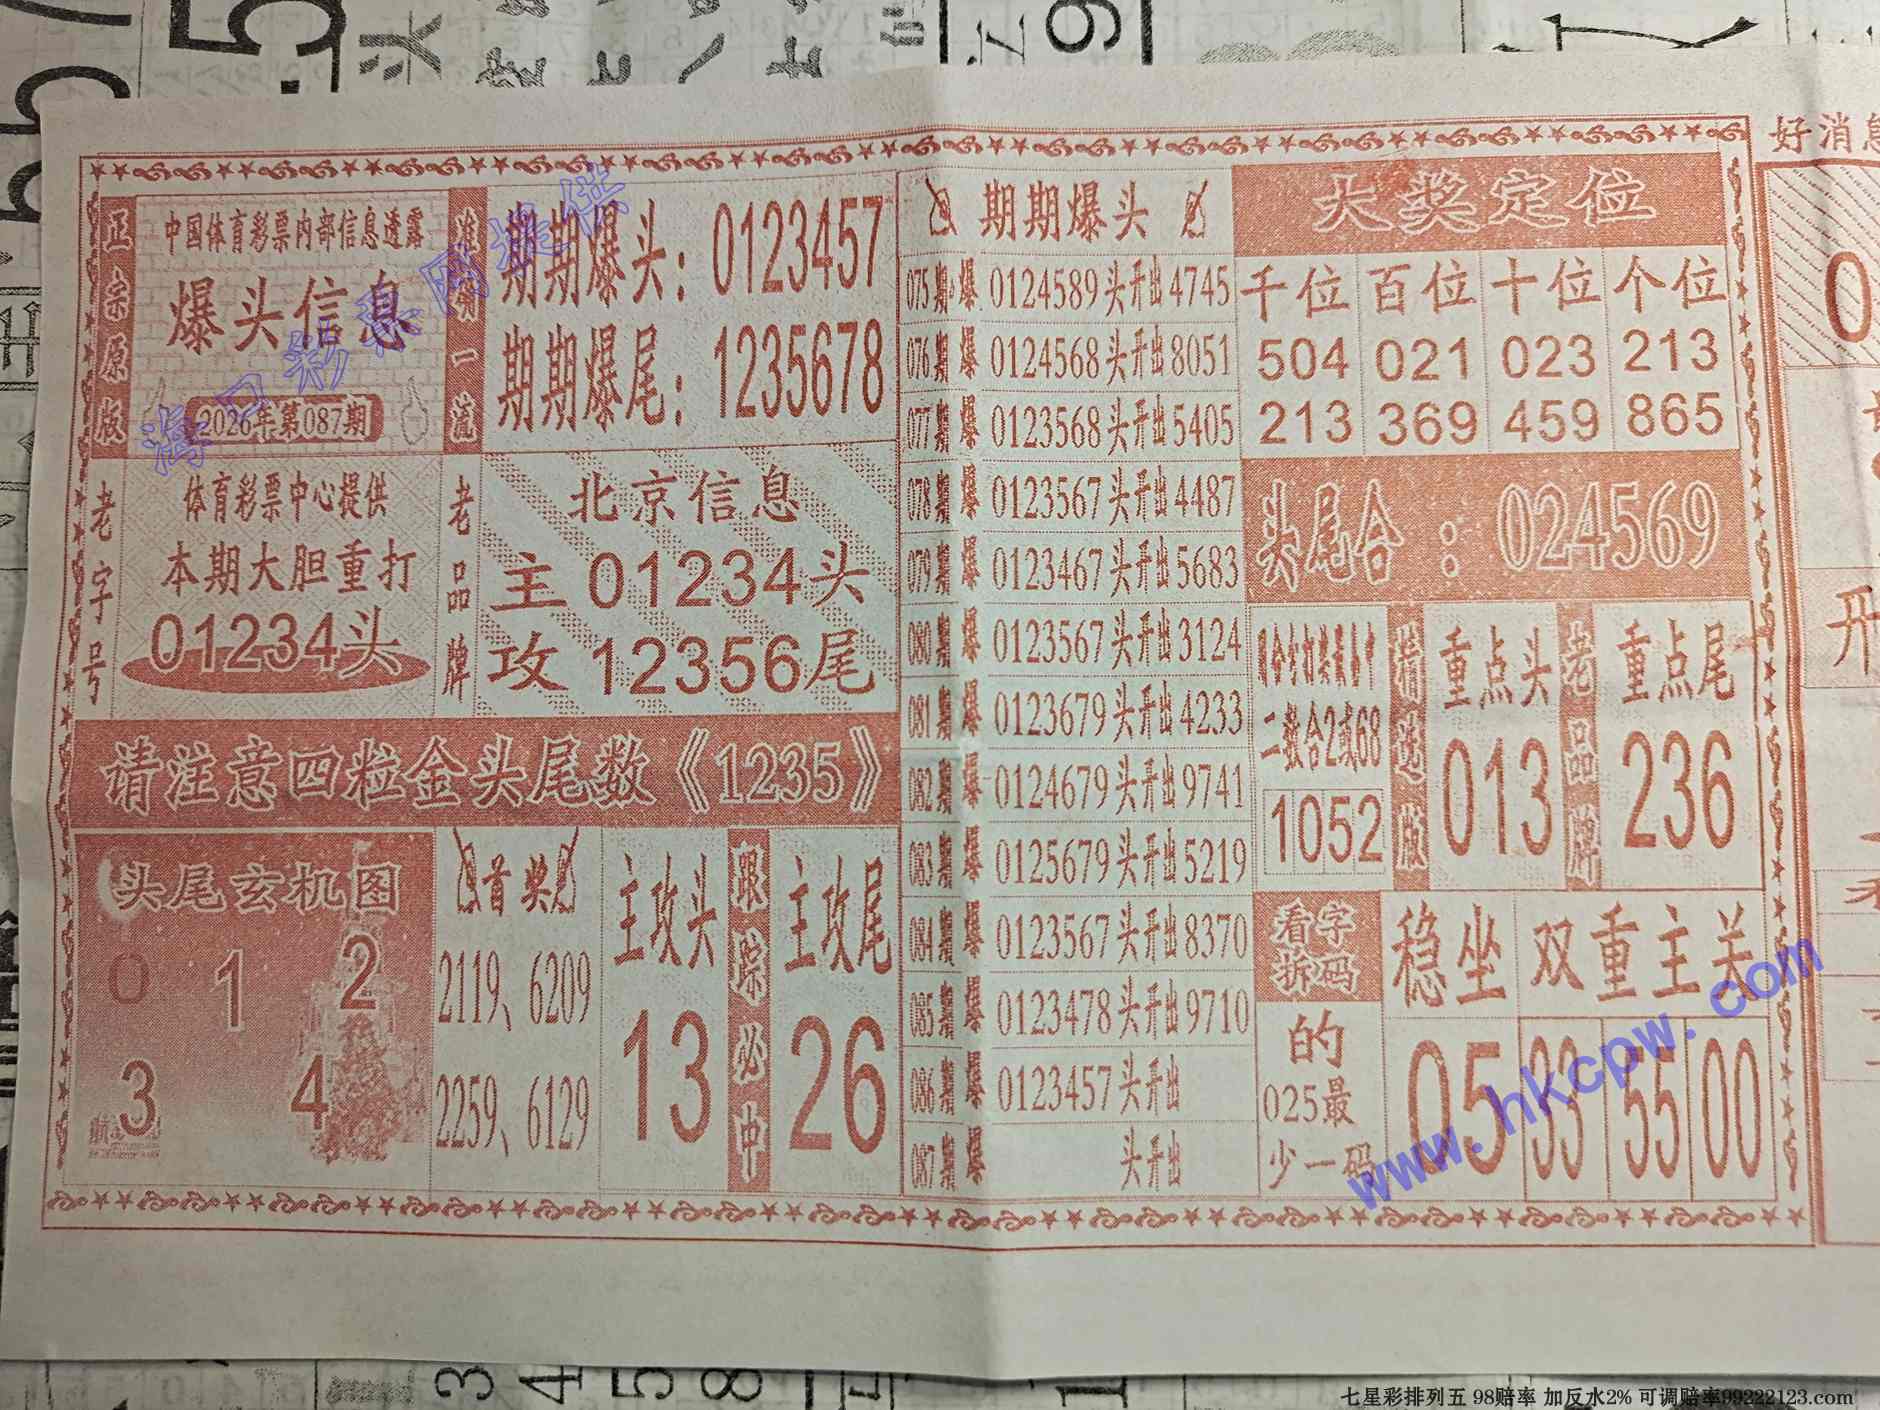 正宗原版
中国体育彩票内部信息透露
爆头信息
2026年第087期
准确一流
期期爆头：0123457
期期爆尾：1235678
老字号
体育彩票中心提供
本期大胆重打
01234头
老品牌
北京信息
主01234头
攻12356尾
请注意四粒金头尾数《1235》
头尾玄机图
0 1 2
3 4
首奖
2119、6209
2259、6129
主攻头
13
跟踪必中
主攻尾
26
期期爆头
075期爆 0124589头开出4745
076期爆 0124568头开出8051
077期爆 0123568头开出5405
078期爆 0123567头开出4487
079期爆 0123467头开出5683
080期爆 0123567头开出3124
081期爆 0123679头开出4233
082期爆 0124679头开出9741
083期爆 0125679头开出5219
084期爆 0123567头开出8370
085期爆 0123478头开出9710
086期爆 0123457头开出
087期爆 头开出
大奖定位
千位 百位 十位 个位
504 021 023 213
213 369 459 865
头尾合：024569
二数合2或68
1052
精选版
重点头
013
老品牌
重点尾
236
看字拆码
的
025最
少一码
稳坐
05
双重主关
33 55 00
好消息
开
海口彩票网提供
www.hkcpw.com
七星彩排列五 98赔率 加反水2% 可调赔率99222123.com